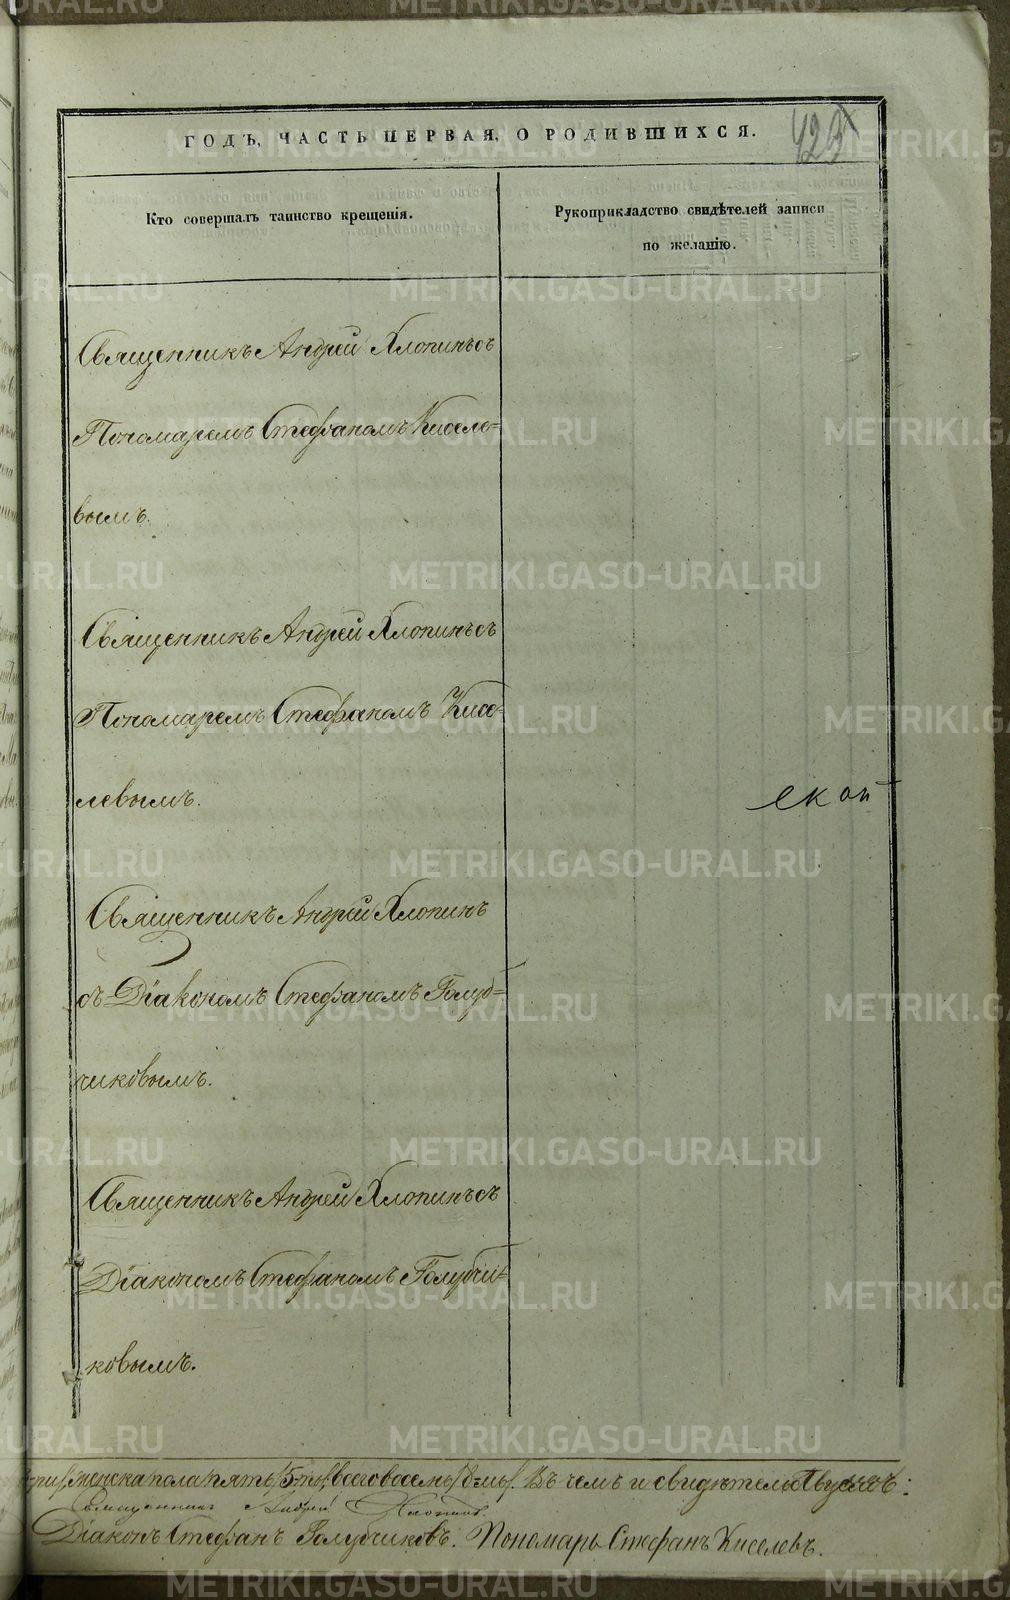 ГОДЪ, ЧАСТЬ ПЕРВАЯ, О РОДИВШИХСЯ.
423
Кто совершалъ таинство крещенія.
Рукоприкладство свидѣтелей записи
по желанію.
Священникъ Андрей Хлопинъ съ
Пономаремъ Стефаномъ Кисело=
вымъ.
Священникъ Андрей Хлопинъ съ
Пономаремъ Стефаномъ Кисе=
левымъ.
ской
Священникъ Андрей Хлопинъ
съ Діакономъ Стефаномъ Голуб=
чиковымъ.
Священникъ Андрей Хлопинъ съ
Діакономъ Стефаномъ Голубчи=
ковымъ.
женска пола пять /5-ть/, всего восемь /8-мь/. Въ чемъ и свидѣтельствуемъ:
Священникъ Андрей Хлопинъ.
Діаконъ Стефанъ Голубчиковъ. Пономарь Стефанъ Киселевъ.
METRIKI.GASO-URAL.RU